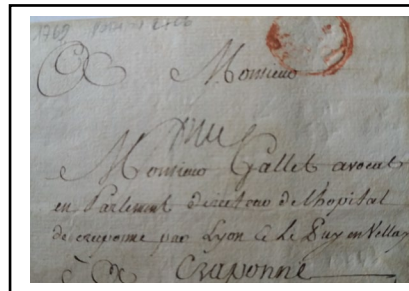 1769
A Monsieur
Monsieur Gallet avocat
en Parlement directeur de l'hopital
de craponne par Lyon & Le Puy en Vellay
à Craponne